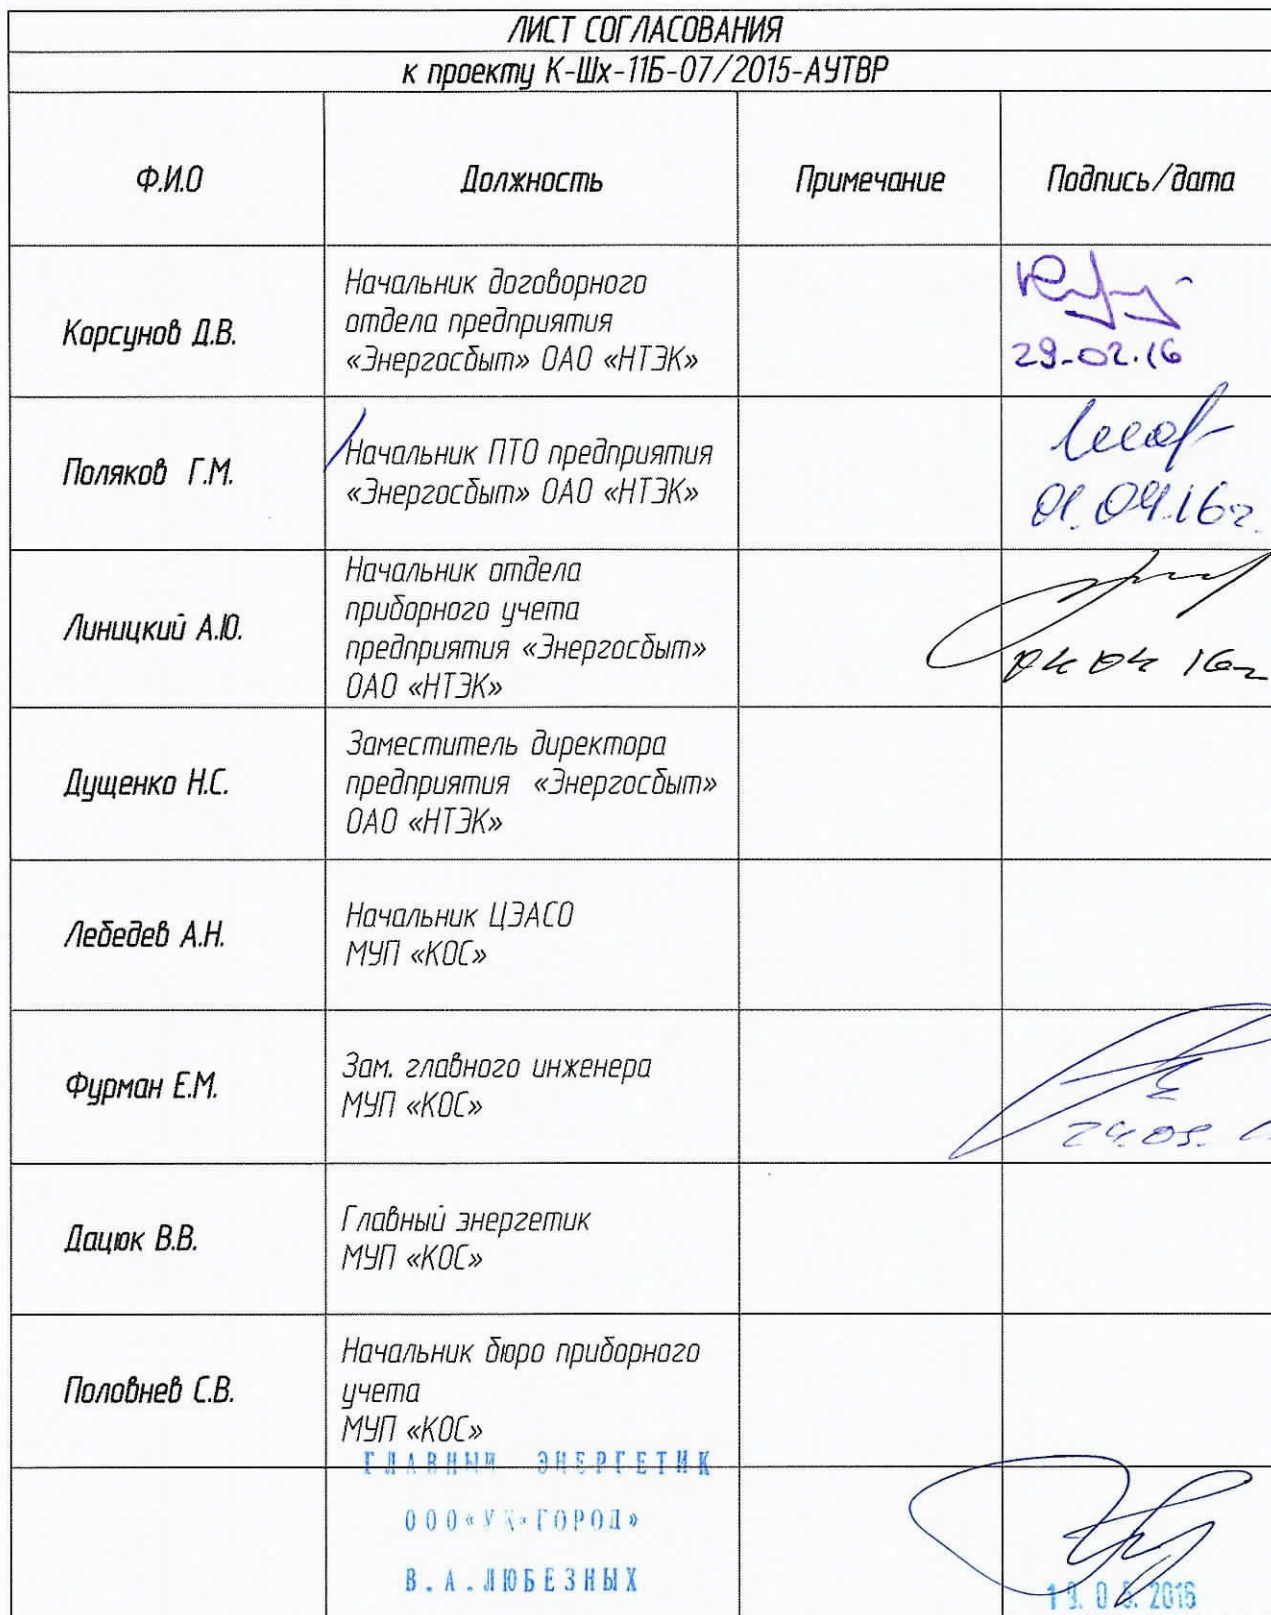 ЛИСТ СОГЛАСОВАНИЯ
к проекту К-Шх-11Б-07/2015-АУТВР
Ф.И.О
Должность
Примечание
Подпись/дата
Корсунов Д.В.
Начальник договорного
отдела предприятия
«Энергосбыт» ОАО «НТЭК»
29.02.16
Поляков Г.М.
Начальник ПТО предприятия
«Энергосбыт» ОАО «НТЭК»
01.04.16г.
Линицкий А.Ю.
Начальник отдела
приборного учета
предприятия «Энергосбыт»
ОАО «НТЭК»
04 04 16г
Дущенко Н.С.
Заместитель директора
предприятия «Энергосбыт»
ОАО «НТЭК»
Лебедев А.Н.
Начальник ЦЭАСО
МУП «КОС»
Фурман Е.М.
Зам. главного инженера
МУП «КОС»
Дацюк В.В.
Главный энергетик
МУП «КОС»
Половнев С.В.
Начальник бюро приборного
учета
МУП «КОС»
ГЛАВНЫЙ ЭНЕРГЕТИК
ООО«УК«ГОРОД»
В.А.ЛЮБЕЗНЫХ